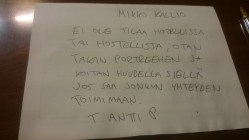 MIKKO KALLIO
EI OLE TILAA HOTELLISSA
TAI HOSTELLISTA, OTAN
TAKIN PORTTOEHEN JA
MIITAN MUUDELLA SIELLÄ
JOS SAA JONKUN YHTEYDEN
TOIMIMAAN
T ANTI